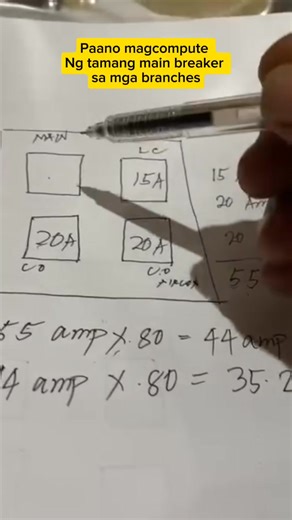 Paano magcompute
Ng tamang main breaker
sa mga branches
MAIN
L.C
15A
15
20 Am
20A
20A
20
C.O
C.O
AIRCON
55
55 amp X .80 = 44 amp
4 amp X .80 = 35.2